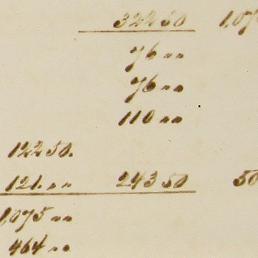 322 50 1,07
76 "
76 "
110 "
122 50.
121. " 243 50 50
1,075 "
464 "